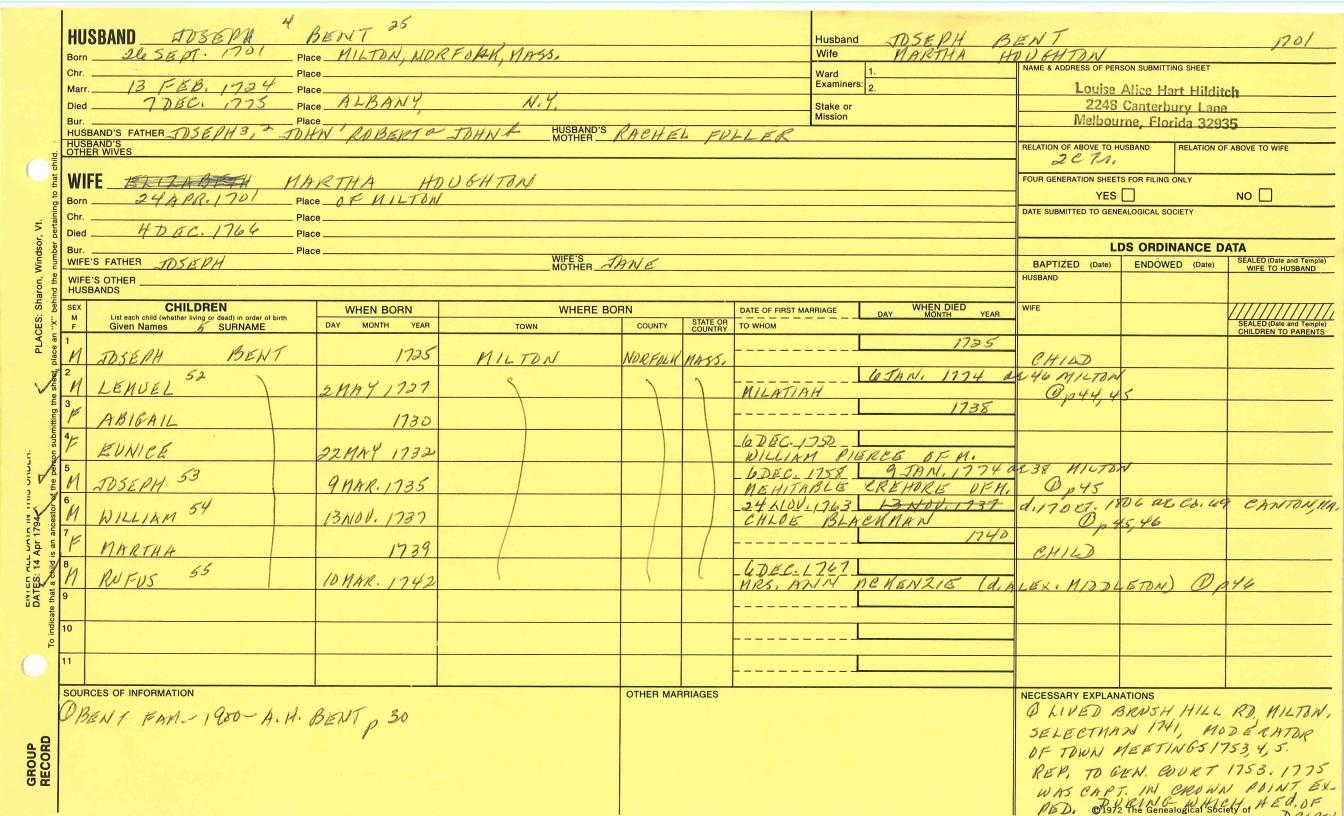 HUSBAND JOSEPH 4 BENT 25
Born 26 SEPT. 1701 Place MILTON, NORFOLK, MASS.
Chr. Place
Marr. 13 FEB. 1724 Place
Died 7 DEC. 1775 Place ALBANY, N.Y.
Bur. Place
HUSBAND'S FATHER JOSEPH 3, 2 JOHN 1 ROBERT a JOHN HUSBAND'S MOTHER RACHEL FULLER
HUSBAND'S OTHER WIVES
Husband JOSEPH BENT 1701
Wife MARTHA HOUGHTON
Ward Examiners: 1.
2.
Stake or Mission
NAME & ADDRESS OF PERSON SUBMITTING SHEET
Louise Alice Hart Hilditch
2248 Canterbury Lane
Melbourne, Florida 32935
RELATION OF ABOVE TO HUSBAND RELATION OF ABOVE TO WIFE
2C 7r.
FOUR GENERATION SHEETS FOR FILING ONLY
YES NO
DATE SUBMITTED TO GENEALOGICAL SOCIETY
WIFE ELIZABETH MARTHA HOUGHTON
Born 24 APR. 1701 Place OF MILTON
Chr. Place
Died 4 DEC. 1766 Place
Bur. Place
WIFE'S FATHER JOSEPH WIFE'S MOTHER JANE
WIFE'S OTHER HUSBANDS
LDS ORDINANCE DATA
BAPTIZED (Date) ENDOWED (Date) SEALED (Date and Temple) WIFE TO HUSBAND
HUSBAND
WIFE
SEALED (Date and Temple) CHILDREN TO PARENTS
SEX M F
CHILDREN
List each child (whether living or dead) in order of birth
Given Names 5 SURNAME
WHEN BORN
DAY MONTH YEAR
WHERE BORN
TOWN COUNTY STATE OR COUNTRY
DATE OF FIRST MARRIAGE
TO WHOM
WHEN DIED
DAY MONTH YEAR
1 M JOSEPH BENT 1725 MILTON NORFOLK MASS. 1725 CHILD
2 M LEMUEL 52 2 MAY 1727 MILATIAH 6 JAN. 1774 ae 46 MILTON
① p44, 45
3 F ABIGAIL 1730 1738
4 F EUNICE 22 MAY 1732 6 DEC. 1750
WILLIAM PIERCE OF M.
5 M JOSEPH 53 9 MAR. 1735 6 DEC. 1758 9 JAN. 1774 ae 38 MILTON
MEHITABLE CREHORE OF M. ① p45
6 M WILLIAM 54 13 NOV. 1737 24 NOV. 1763 13 NOV. 1737 d. 17 OCT. 1806 ae Ca. 69 CANTON, MA.
CHLOE BLACKMAN ① p45,46
7 F MARTHA 1739 1740 CHILD
8 M RUFUS 55 10 MAR. 1742 6 DEC. 1767
MRS. ANN MCKENZIE (d. ALEX. MIDDLETON) ① p46
9
10
11
SOURCES OF INFORMATION
① BENT FAM - 1900 - A.H. BENT p 30
OTHER MARRIAGES
NECESSARY EXPLANATIONS
① LIVED BRUSH HILL RD, MILTON.
SELECTMAN 1741, MODERATOR
OF TOWN MEETINGS 1753, 4, 5.
REP. TO GEN. COURT 1753. 1775
WAS CAPT. IN CROWN POINT EX-
PED. DURING WHICH HE d. OF
©1972 The Genealogical Society of
PLACES: Sharon, Windsor, Vt.
ENTER ALL DATA IN THIS ORDER:
DATES: 14 Apr 1794
To indicate that a child is an ancestor of the person submitting the sheet, place an "X" behind the number pertaining to that child.
GROUP RECORD